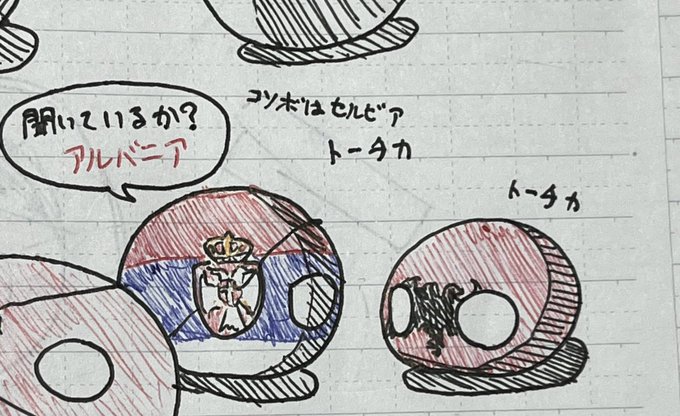 聞いているか?
アルバニア
コソボはセルビア
トーチカ
トーチカ